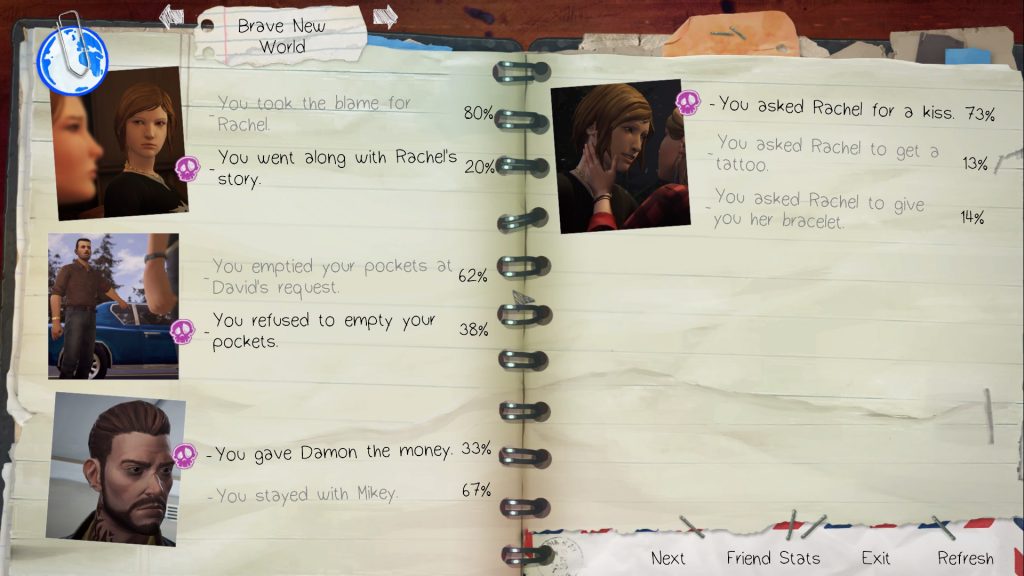 Brave New
World
-You took the blame for
Rachel.
80%
-You went along with Rachel's
story.
20%
-You emptied your pockets at
David's request.
62%
-You refused to empty your
pockets.
38%
-You gave Damon the money. 33%
-You stayed with Mikey. 67%
-You asked Rachel for a kiss. 73%
-You asked Rachel to get a
tattoo.
13%
-You asked Rachel to give
you her bracelet.
14%
Next Friend Stats Exit Refresh